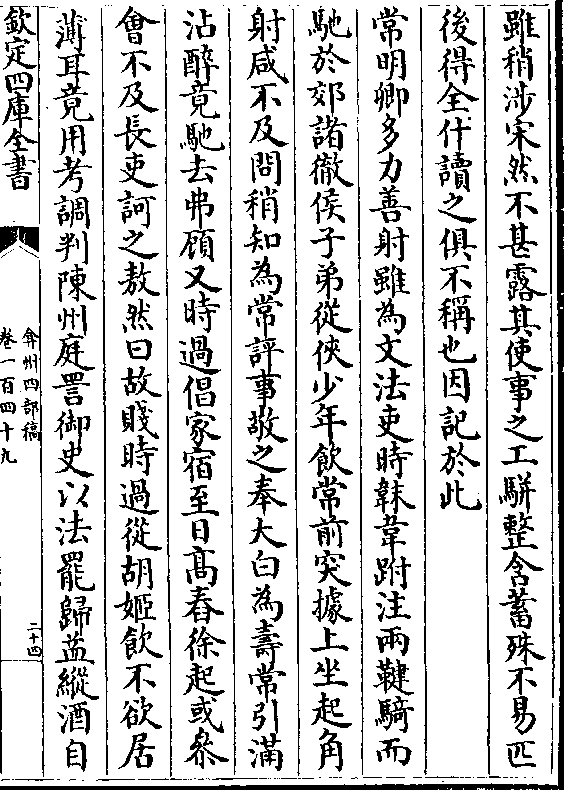 雖稍涉宋然不甚露其使事之工駢整含蓄殊不易匹
後得全什讀之俱不稱也因記於此
常明卿多力善射雖為文法吏時韎韋跗注兩鞬騎而
馳於郊諸徹侯子弟從俠少年飲常前突據上坐起角
射咸不及問稍知為常評事敬之奉大白為壽常引滿
沾醉竟馳去弗顧又時過倡家宿至日髙舂徐起或叅
會不及長吏訶之敖然曰故賤時過從胡姬飲不欲居
薄耳竟用考調判陳州庭詈御史以法罷歸益縱酒自
欽定四庫全書
弇州四部稿
卷一百四十九
二十四